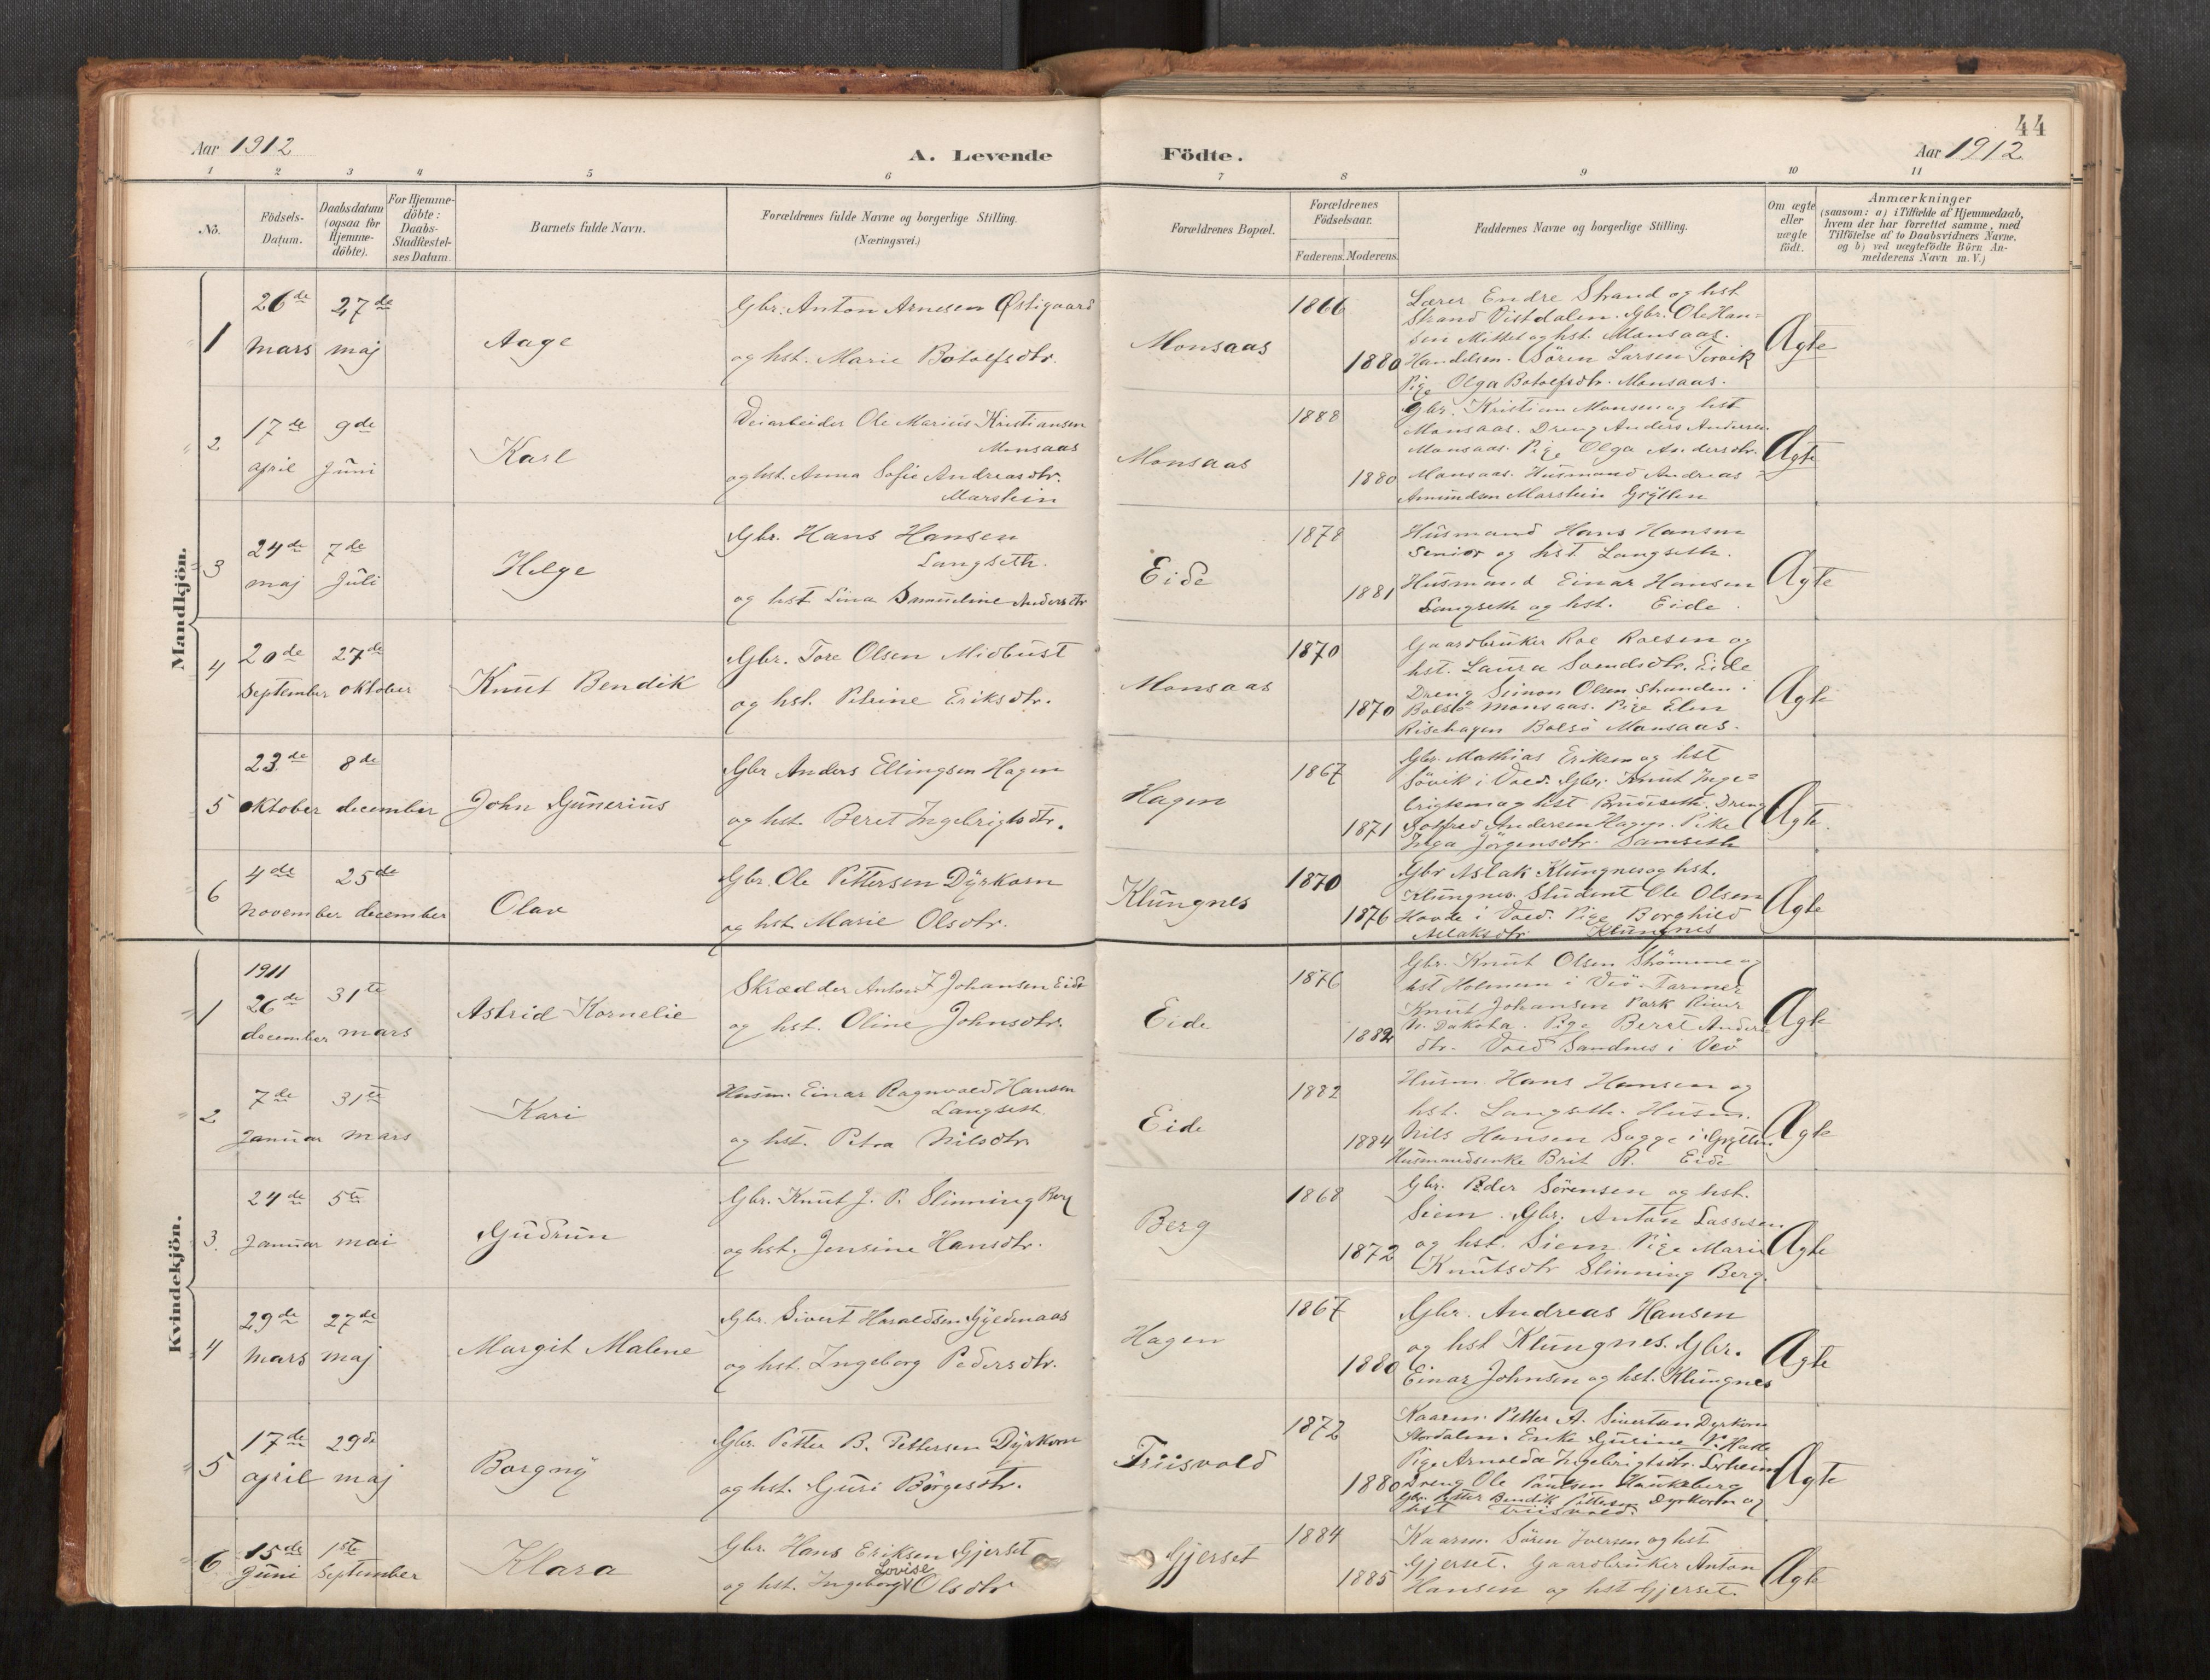 44
Aar 1912
A. Levende Födte.
Aar 1912
1 2 3 4 5 6 7 8 9 10 11
No.
Födsels-
Datum.
Daabsdatum
(ogsaa for
Hjemme-
döbte).
For Hjemme-
döbte:
Daabs-
Stadfæstel-
ses Datum.
Barnets fulde Navn.
Forældrenes fulde Navne og borgerlige Stilling.
(Næringsvei.)
Forældrenes Bopæl.
Forældrenes
Födselsaar.
Faderens. Moderens.
Faddernes Navne og borgerlige Stilling.
Om ægte
eller
uægte
födt.
Anmærkninger
(saasom: a) i Tilfælde af Hjemmedaab,
hvem der har forrettet samme, med
Tilföielse af to Daabsvidners Navne,
og b) ved uægtefödte Börn An-
melderens Navn m. V.)
Mandkjön.
1
26de
mars
27de
maj
Aage
Gbr. Anton Arnesen Østigaard
og hst. Marie Botolfsdtr.
Monsaas
1866
1880
Lærer Endre Strand og hst
Strand Vistdalen. Gbr. Ole Han=
sen Mittet og hst. Monsaas.
Handelsm. Sören Larsen Torvik
Pige Olga Botolfsdtr. Monsaas.
Ægte
2
17de
april
9de
Juni
Karl
Veiarbeider Ole Marius Kristiansen
Monsaas
og hst. Anna Sofie Andreasdtr.
Marstein
Monsaas
1888
1880
Gbr. Kristian Monsen og hst
Monsaas. Dreng Anders Andersen
Monsaas. Pige Olga Andersdtr.
Monsaas. Husmand Andreas
Amundsen Marstein Grytten
Ægte
3
24de
maj
7de
Juli
Helge
Gbr. Hans Hansen
Langseth.
og hst Lina Samueline Andersdtr
Eide
1878
1881
Husmand Hans Hansen
Senior og hst. Langseth.
Husmand Einar Hansen
Langseth og hst. Eide.
Ægte
4
20de
September
27de
oktober
Knut Bendik
Gbr. Tore Olsen Midbust
og hst. Petrine Eriksdtr.
Monsaas
1870
1870
Gaardbruker Roe Roesen og
hst. Laura Eide
Dreng Simon Olsen Stranden i
Bolsö Monsaas. Pige Elen
Risehagen Bolsö Monsaas.
Ægte
5
23de
oktober
8de
december
John Gunerius
Gbr Anders Ellingsen Hagen
og hst. Beret Ingebrigtsdtr.
Hagen
1867
1871
Gbr. Mathias Eriksen og hst
Sövik i Voed. Gbr. Knut Inge=
brigtsen og hst Bruuseth. Dreng
Andersen Hagen. Pike
Inga Jörgensdtr.
Ægte.
6
4de
november
25de
december
Olav
Gbr. Ole Pettersen Dyrkorn
og hst. Marie Olsdtr.
Klungnes
1870
1876
Gbr Aslak Klungnes og hst.
Klungnes. Student Ole Olsen
Hovde i Voed. Pige Borghild
Aslaksdtr Klungnes
Ægte
Kvindekjön.
1
1911
26de
december
31te
mars
Astrid Kornelie
Skrædder Anton J Johansen Eide
og hst. Oline Johnsdtr.
Eide
1876
1882
Gbr. Knut Olsen Strömme og
hst Holmem i Veö. Farmer
Knut Johansen Park River
N. Dakota. Pige Beret Anders
dtr. Voed Sandnes i Veö
Ægte
2
7de
Januar
31te
mars
Kari
Husm. Einar Ragnvald Hansen
Langseth
og hst. Petra Nilsdtr
Eide
1882
1884
Husm. Hans Hansen og
hst. Langseth. Husm.
Nils Hansen Sogge i Grytten
Husmandsenke Brit R. Eide
Ægte
3.
24de
Januar
5te
mai
Gudrun
Gbr. Knut J. P. Slinning Berg
og hst. Jensine Hansdtr.
Berg
1868
1872
Gbr. Peder Sörensen og hst.
Siem. Gbr. Anton Lassesen
og hst. Siem. Pige Marie
Knutsdtr Slinning Berg.
Ægte
4
29de
mars
27de
maj
Margit Malene
Gbr. Sivert Haraldsen Gjelmaas
og hst. Ingeborg Pedersdtr.
Hagen
1867
1880
Gbr. Andreas Hansen
og hst Klungnes. Gbr.
Einar Johnsen og hst. Klungnes
Ægte
5
17de
april
29de
maj
Borgny
Gbr. Petter B. Pettersen Dyrkorn
og hst. Guri Börgesdtr.
Friisvold
1872
1880
Kaarm. Petter A. Sivertsen Dyrkorn
Stordalen. Enke Gurine P. Hatle
Pige Arnolda Ingebrigtsdtr.
Dreng Ole Paulsen Haukeberg
Gbr. Petter Bendik Pettersen Dyrkorn og
hst Friisvold.
Ægte
6
15de
Juni
1ste
September
Klara
Gbr. Hans Eriksen Gjerset
Lovise
og hst. Ingeborg Olsdtr
Gjerset
1884
1885
Kaarm. Sören Iversen og hst
Gjerset. Gaardbruker Anton
Hansen og hst Gjerset.
Ægte